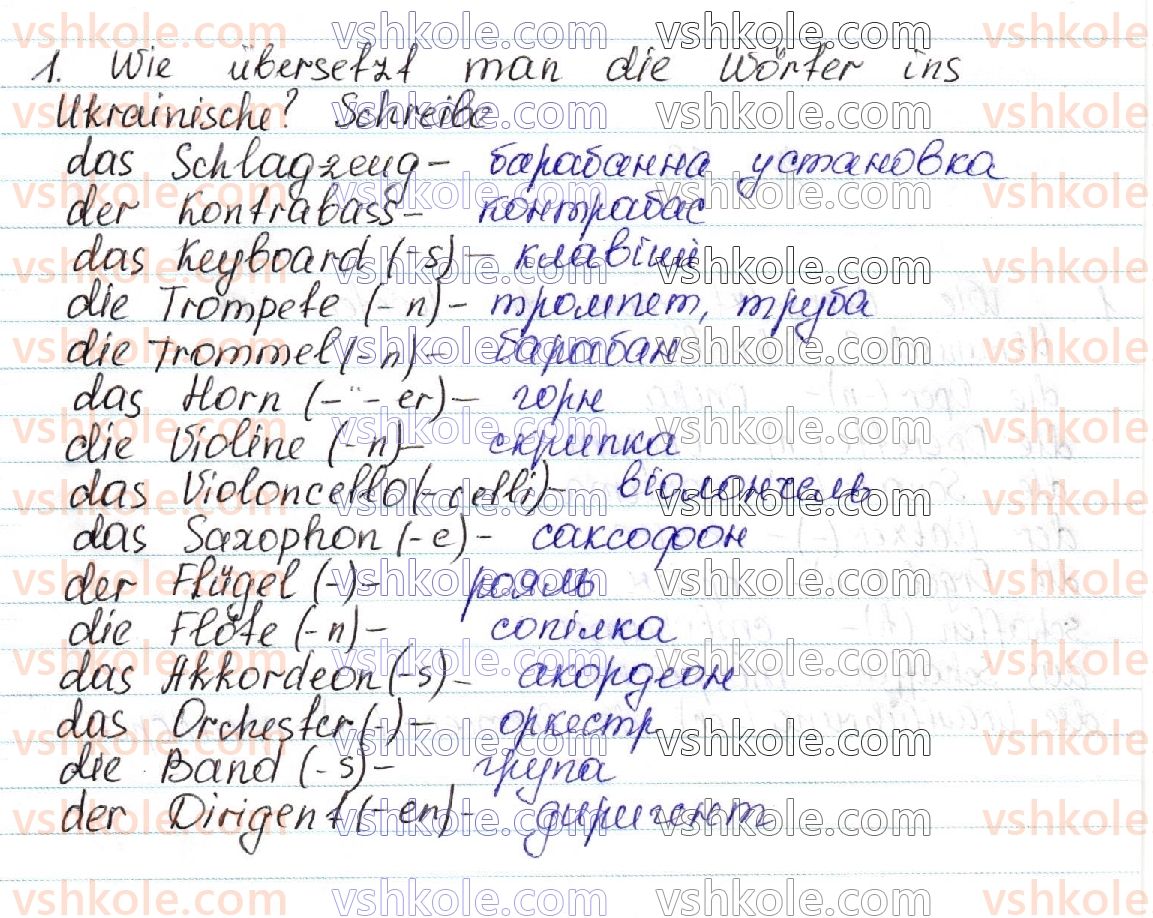 1. Wie übersetzt man die Wörter ins
Ukrainische? Schreibe
das Schlagzeug – барабанна установка
der Kontrabass – контрабас
das Keyboard (-s) – клавіші
die Trompete (-n) – тромпет, труба
die Trommel (-n) – барабан
das Horn (-¨-er) – горн
die Violine (-n) – скрипка
das Violoncello (-celli) – віолончель
das Saxophon (-e) – саксофон
der Flügel (-) – рояль
die Flöte (-n) – сопілка
das Akkordeon (-s) – акордеон
das Orchester (-) – оркестр
die Band (-s) – група
der Dirigent (-en) – диригент
vshkole.com